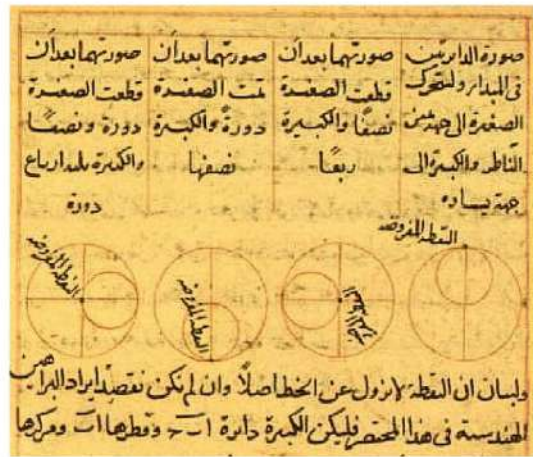 صورة الدائرتين
فى المبدا ولتتحرك
الصغيرة الى جهة يمين
الناظر والكبيرة الى
جهة يساره
صورتهما بعد ان
قطعت الصغيرة
نصفًا والكبيرة
ربعًا
صورتهما بعد ان
تمت الصغيرة
دورةً والكبيرة
نصفها
صورتهما بعد ان
قطعت الصغيرة
دورة ونصفًا
والكبيرة ثلثة ارباع
دورة
النقطة المفروضة
النقطة المفروضة
النقطة المفروضة
ولبيان ان النقطة لا تزول عن الخط اصلاً وان لم نكن نقصد ايراد البراهين
الهندسية فى هذا المختصر فليكن الكبيرة دائرة وقطرها ومركزها